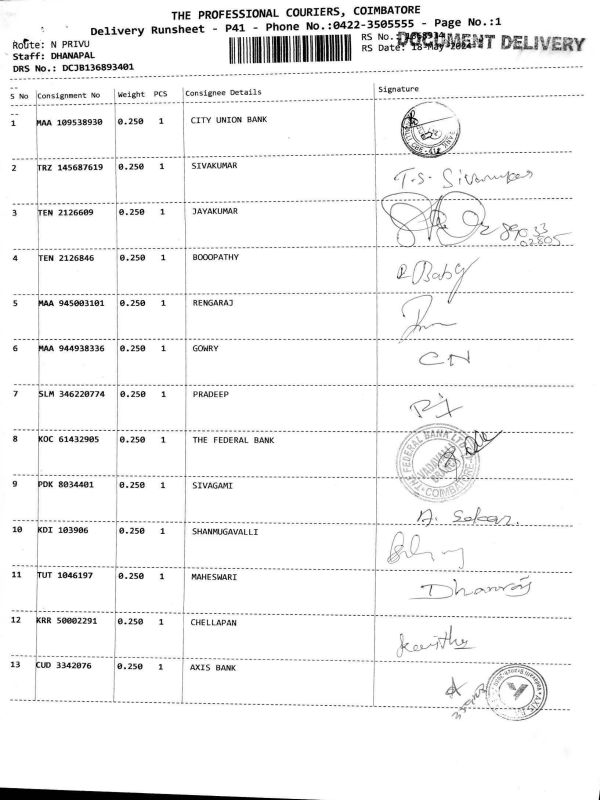 THE PROFESSIONAL COURIERS, COIMBATORE
Delivery Runsheet - P41 - Phone No.:0422-3505555 - Page No.:1
Route: N PRIVU
RS No.:
DOCUMENT DELIVERY
Staff: DHANAPAL
RS Date: 18-May-2024
DRS No.: DCJB136893401
S No Consignment No Weight PCS Consignee Details Signature
1 MAA 109538930 0.250 1 CITY UNION BANK
2 TRZ 145687619 0.250 1 SIVAKUMAR T.S. Sivakumar
3 TEN 2126609 0.250 1 JAYAKUMAR 89033
02805
4 TEN 2126846 0.250 1 BOOOPATHY R Baby
5 MAA 945003101 0.250 1 RENGARAJ
6 MAA 944938336 0.250 1 GOWRY CN
7 SLM 346220774 0.250 1 PRADEEP
8 KOC 61432905 0.250 1 THE FEDERAL BANK THE FEDERAL BANK LTD COIMBATORE
9 PDK 8034401 0.250 1 SIVAGAMI A. Sekar.
10 KDI 103906 0.250 1 SHANMUGAVALLI
11 TUT 1046197 0.250 1 MAHESWARI Dhanraj
12 KRR 50002291 0.250 1 CHELLAPAN Kavitha
13 CUD 3342076 0.250 1 AXIS BANK